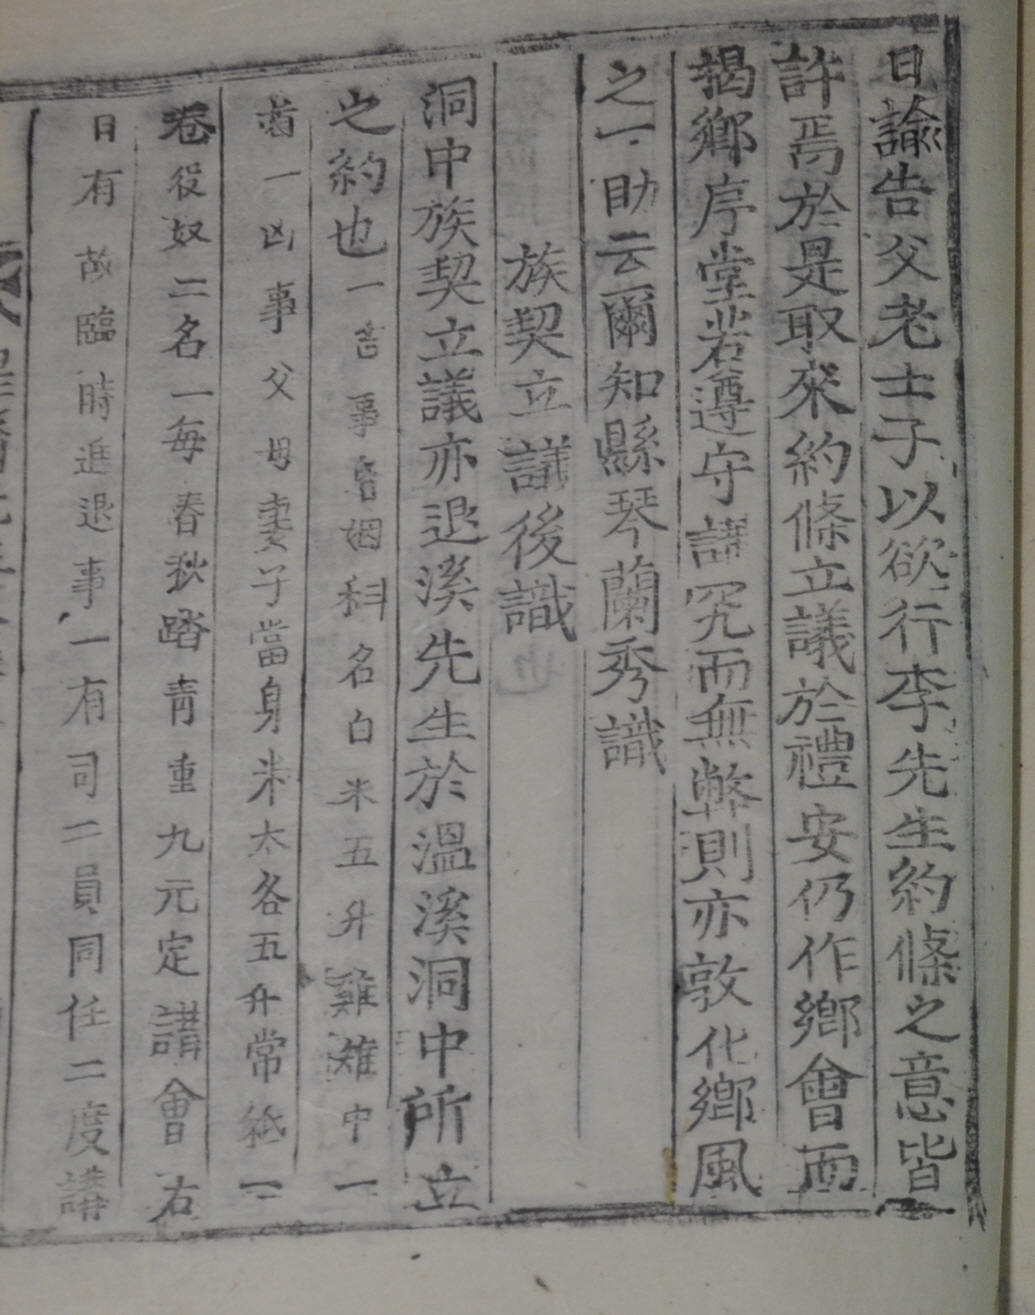 日諭告父老士子以欲行李先生約條之意皆
許焉於是取來約條立議於禮安仍作鄉會而
揭鄉序堂若遵守講究而無弊則亦敦化鄉風
之一助云爾知縣琴蘭秀識
族契立議後識
洞中族契立議亦退溪先生於溫溪洞中所立
之約也一吉事昏姻科名白米五升雞雉中一
首一凶事父母妻子當身米太各五升常紙一
卷役奴二名一每春秋踏靑重九元定講會右
日有故臨時進退事一有司二員同任二度講